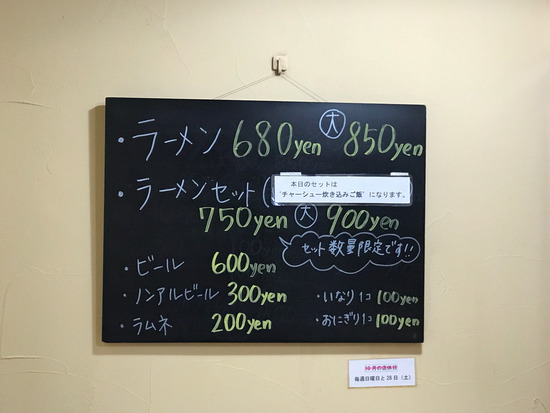 ・ラーメン 680yen 大 850yen
・ラーメンセット(
本日のセットは
"チャーシュー炊き込みご飯"になります。
750yen 大 900yen
セット数量限定です!!
・ビール 600yen
・ノンアルビール 300yen
・ラムネ 200yen
・いなり1コ 100yen
・おにぎり1コ 100yen
10月の定休日
毎週日曜日と28日(土)